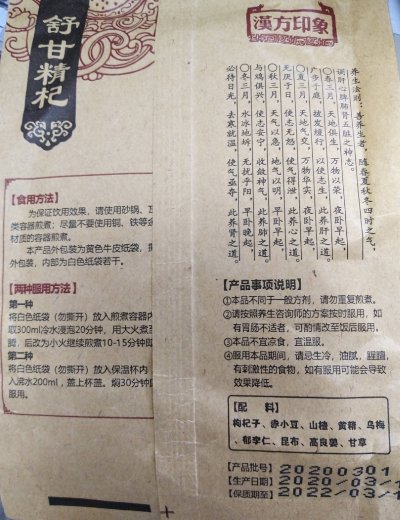 舒甘精杞
漢方印象
养生法则：善养生者，随春夏秋冬四时之气，
调肝心脾肺肾五脏之神志。
〇春三月，天地俱生，万物以荣，夜卧早起，
广步于庭，披发缓行，以使志生，此养肝之道。
〇夏三月，天地气交，万物华实，夜卧早起，
无厌于日，使志无怒，使气得泄，此养心之道。
〇秋三月，天气以急，地气以明，早卧早起，
与鸡俱兴，使志安宁，收敛神气，此养肺之道。
〇冬三月，水冰地坼，无扰乎阳，早卧晚起，
必待日光，去寒就温，使气亟夺，此养肾之道。
【食用方法】
为保证饮用效果，请使用砂锅、
类容器煎煮；尽量不要使用铜、铁等金
材质的容器煎煮。
本产品外包装为黄色牛皮纸袋，
外包装，内部为白色纸袋若干。
【两种服用方法】
第一种
将白色纸袋（勿撕开）放入煎煮容器内
取300ml冷水浸泡20分钟，用大火煮至
腾，后改为小火继续煎煮10-15分钟即
第二种
将白色纸袋（勿撕开）放入保温杯内
入沸水200ml，盖上杯盖。焖30分钟即
服用。
【产品事项说明】
①本品不同于一般方剂，请勿重复煎煮。
②请按照养生咨询师的方案按时服用，如
有胃肠不适者，可酌情改至饭后服用。
③本品不宜凉食，宜温服。
④服用本品期间，请忌生冷，油腻，腥膻，
有刺激性的食物，如有服用可能会导致
效果降低。
【配 料】
枸杞子、赤小豆、山楂、黄精、乌梅
、郁李仁、昆布、高良姜、甘草
【产品批号】20200301
【生产日期】2020/03/1
【保质期至】2022/03/1